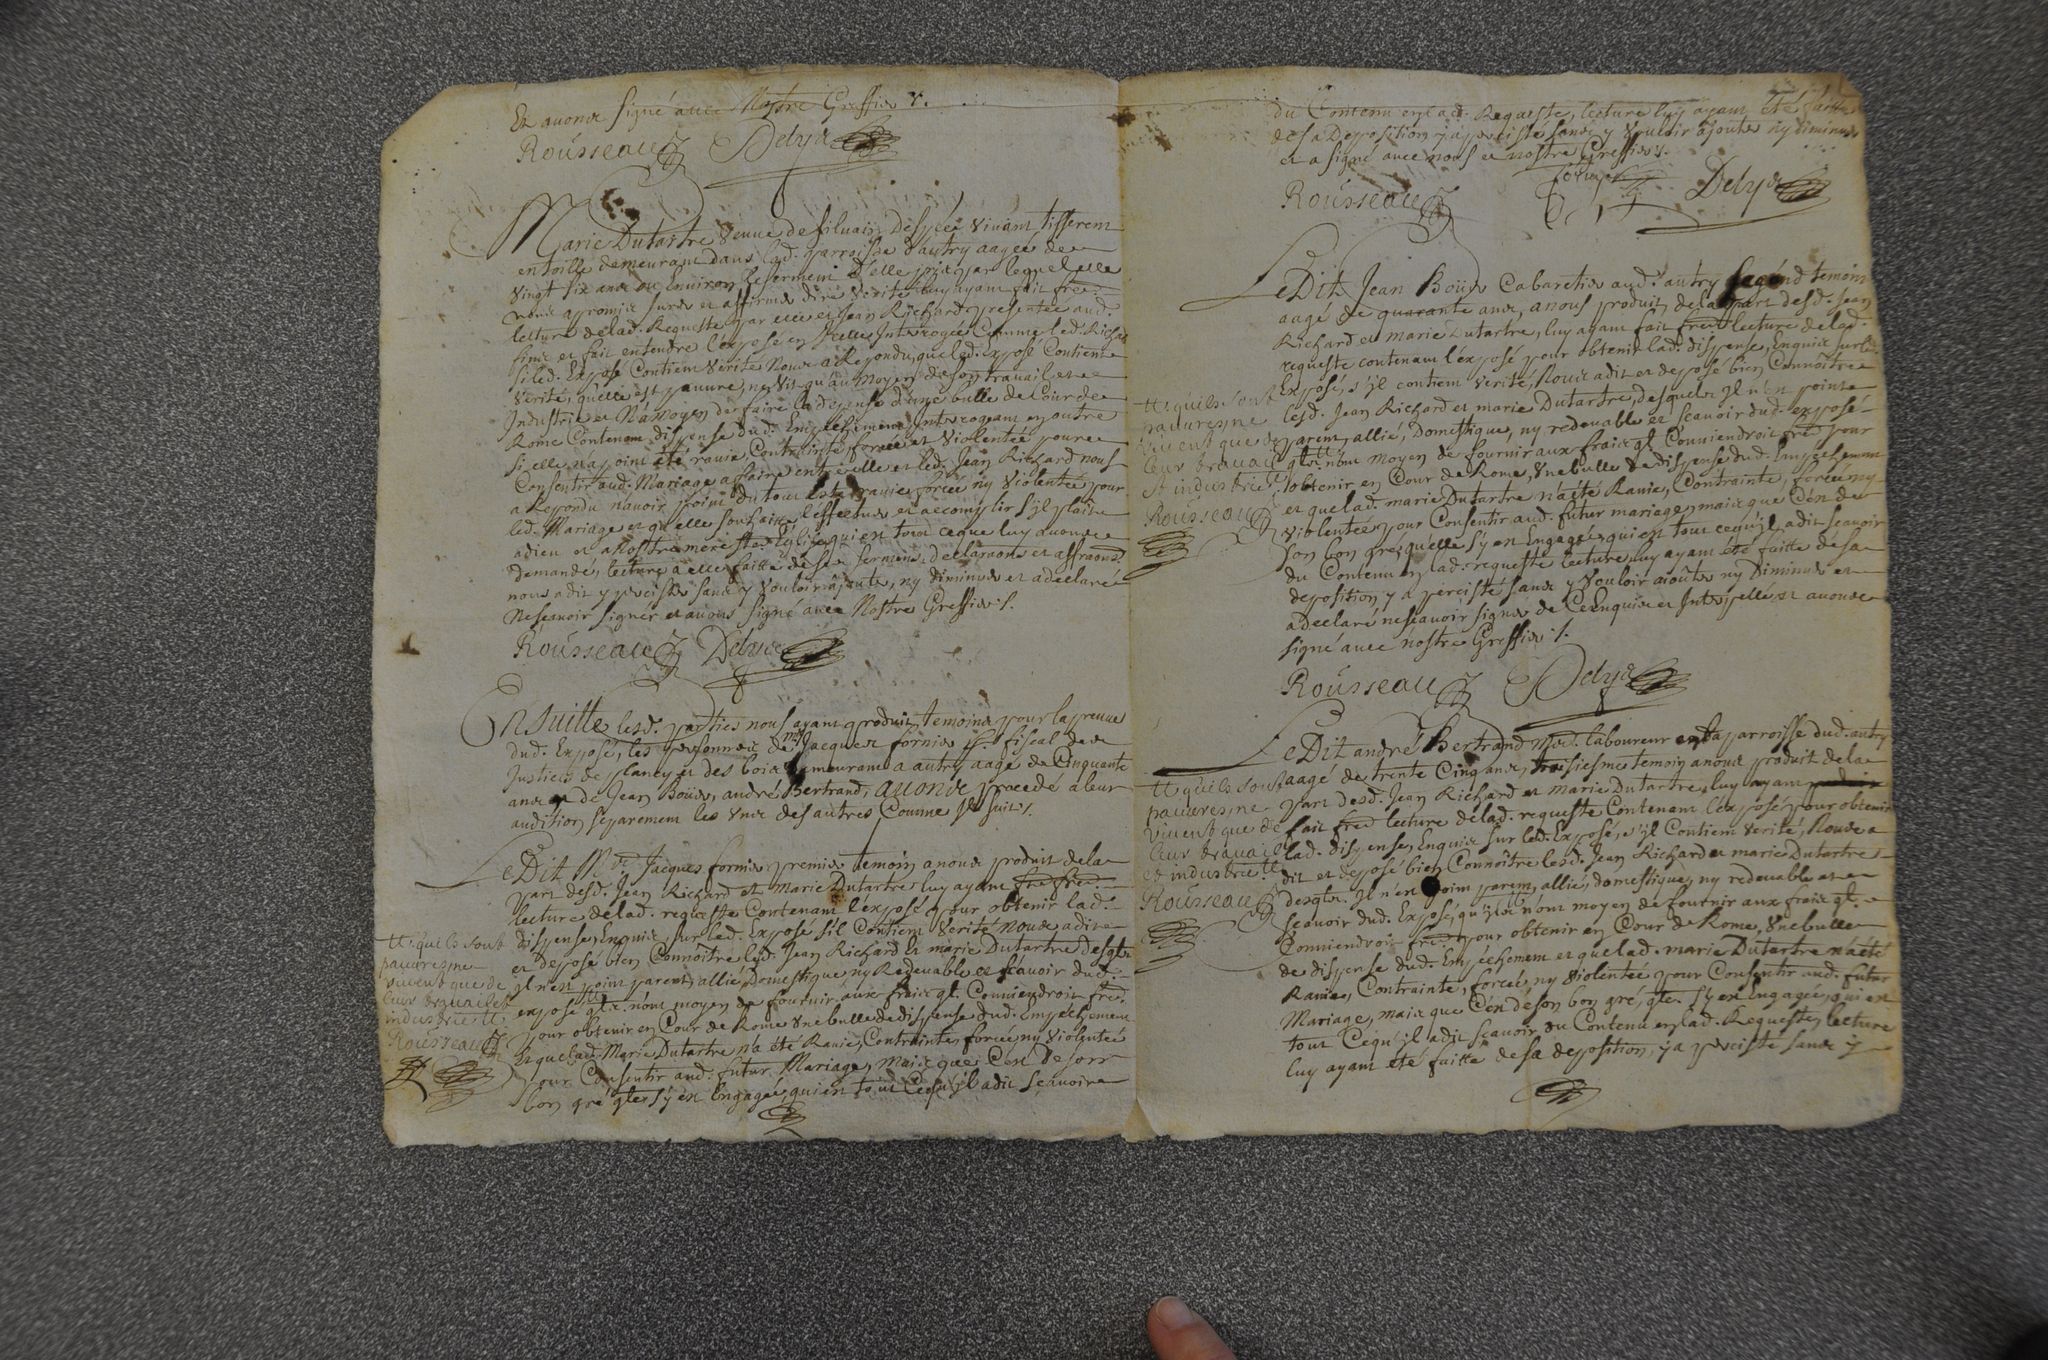 Et avons signé avec Nostre Greffier ./.
Rousseau Delys
Marie Dutartre veuve de silvain Despée vivant tisseren
en toille demeurant dans lad. parroisse d'autry aagée de
vingt six ans ou environ le serment d'elle pris par lequel elle
nous a promis jurer et affirmer dire verité luy ayant fait fre
lecture delad. Requeste par elle et Jean Richard presentée aud.
fins et fait entendre l'exposé en Icelle Interogée Comme led. Richar
si led. Exposé Contient verité Nous a Repondu que led. exposé Contient
verité, qu'elle est pauvre, ne vit qu'au moyen de son travail et
Industrie et N'a moyen de faire la depense d'une bulle de Cour de
Rome Contenant dispense dud. Empeschement Interogeant en outre
si elle n'a point été ravie, Contrainte, forcée et violentée pour
Consentir aud. Mariage a faire entre elle et led. Jean Richard nous
a Repondu n'avoir point du tout esté ravie forcée ny violentée pour
led. Mariage et qu'elle souhaitte l'effectuer et accomplir s'il plait
a dieu et a Nostre mere ste. Eglise qui est tout ce que luy avons
demandé, lecture a elle faitte de ses serment, declaraons et affraons
nous a dit y percister sans y vouloir ajouter, ny diminuer et a declaré
Ne scavoir signer et avons signé avec Nostre Greffier ./.
Rousseau Delys
En suitte lesd. parties nous ayant produit temoins pour la preuve
dud. Exposé, les personnes de Me Jacques fornier pr. fiscal des
Justices de plancy et des bois demeurant a autry aagé de Cinquante
ans et de Jean Boüer, andré Bertrand, avons procedé a leur
audition separement les uns des autres Comme Il suit ./.
Le Dit Me Jacques fornier premier temoin a nous produit de la
part desd. Jean Richard et Marie Dutartre luy ayant fre fred.
lecture delad. requeste Contenant l'exposé pour obtenir lad.
dispense, Enquis sur led. Exposé s'il Contient verité Nous a dit
et deposé bien Connoitre led. Jean Richard Et marie Dutartre desqls
Il n'est point parent, allié, Domestique ny Redevable et scavoir dud.
exposé qls. n'ont moyen de fournir aux frais ql. Conviendroit fred.
pour obtenir en Cour de Rome une bulle de dispense dud. Empechement
Et que lad. Marie Dutartre n'a été Ravie, Contrainte, forcée, ny violentée
pour Consentir aud. futur Mariage, mais que C'est De son
bon gré qle. s'y est Engagée, qui est tout Ce qu'Il a dit scavoir
tt. qu'ils sont
pauvres, ne
vivent que de
leur travail et
industrie tt.
Rousseau
du Contenu en lad. Requeste, lecture luy ayant été faitte
de sa Deposition y a perciste sans y vouloir ajouter ny diminuer
et a signé avec nous et nostre Greffier ./.
fornier
Rousseau Delys
Le Dit Jean Boüer Cabaretier aud. autry second temoin
aagé de quarante ans, a nous produit de la part desd. Jean
Richard et marie Dutartre, luy ayant fait fred lecture delad.
requeste contenant l'exposé pour obtenir lad. dispense, Enquis sur led.
Exposé, s'il contient verité, Nous a dit et deposé bien Connoitre
lesd. Jean Richard et marie Dutartre, desquels Il n'est point
parent, allié, Domestique, ny redevable et scavoir dud. exposé
qls. n'ont moyen de fournir aux frais ql. Conviendroit fred. pour
obtenir en Cour de Rome, une bulle de dispense dud. Empechement
et que lad. marie Dutartre n'a été Ravie, Contrainte, forcée ny
violentée pour Consentir aud. futur mariage, mais que C'est de
son bon gré qu'elle s'y est Engagée, qui est tout ce qu'Il a dit scavoir
du Contenu en lad. requeste lecture luy ayant été faitte de sa
deposition y a perciste sans y vouloir ajouter ny diminuer et
a declaré ne scavoir signer de Ce Enquis et Interpellé et avons
signé avec nostre Greffier ./.
tt. qu'ils sont
pauvres, ne
vivent que de
leur travail
et industrie tt.
Rousseau
Rousseau Delys
Le Dit andré Bertrand Md. laboureur en la parroisse dud. autry
aagé de trente Cinq ans, troisiesme temoin a nous produit de la
part desd. Jean Richard et marie Dutartre, luy ayant
fait fred lecture delad. requeste Contenant l'exposé pour obtenir
lad. dispense, Enquis sur led. Exposé, s'il Contient verité, Nous a
dit et deposé bien Connoitre lesd. Jean Richard et marie Dutartre
desqls. Il n'est point parent, allié, domestique, ny redevable et
scavoir dud. Exposé, qu'Ils n'ont moyen de fournir aux frais ql.
Conviendroit fred. pour obtenir en Cour de Rome, une bulle
de dispense dud. Empéchement et que lad. marie Dutartre n'a été
Ravie, Contrainte, forcée, ny violentée pour Consentir aud. futur
Mariage, mais que C'est de son bon gré, qle. s'y est Engagée, qui est
tout Ce qu'il a dit scavoir du Contenu en lad. Requeste, lecture
luy ayant été faitte de sa deposition, y a perciste sans y
tt. qu'ils sont
pauvres, ne
vivent que de
leur travail
et industrie tt.
Rousseau